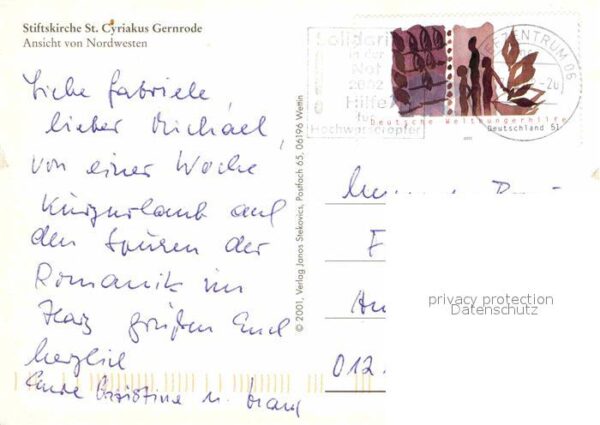 Stiftskirche St. Cyriakus Gernrode
Ansicht von Nordwesten
Liebe Gabriele,
lieber Michael,
von einer Woche
Kurzurlaub auf
den Spuren der
Romanik im
Harz grüßen Euch
herzlich
Eure Christine u.
© 2001, Verlag Janos Stekovics, Postfach 65, 06196 Wettin
Solidarität
in der
Not
2002
Hilfe
für
Hochwasseropfer
BRIEFZENTRUM 06
Deutsche Welthungerhilfe
Deutschland 51
F
An
012
privacy protection
Datenschutz